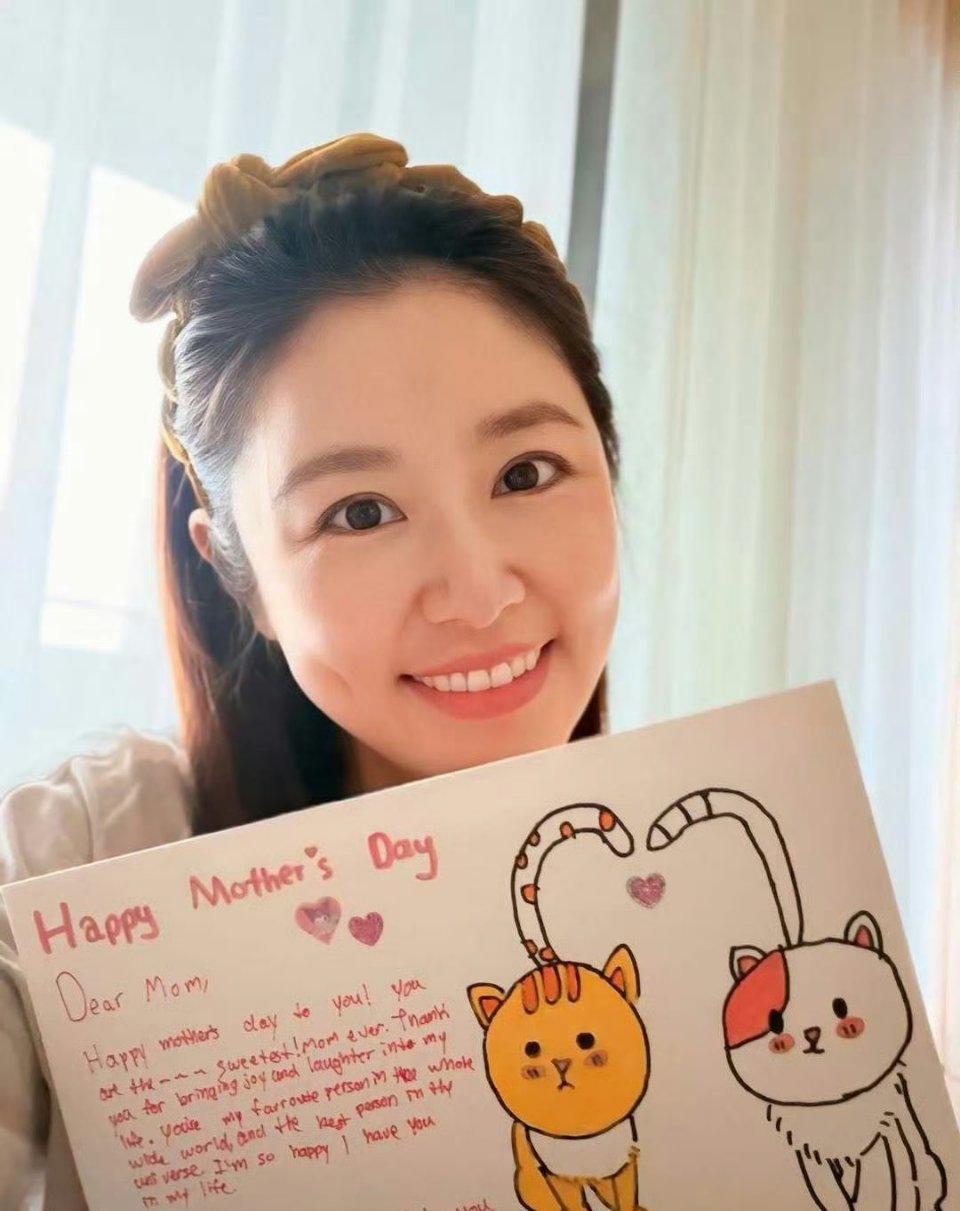 Happy Mother's Day
Dear Mom,
Happy mothers day to you! You
are the ---- sweetest! Mom ever. Thank
you for bringing joy and laughter into my
life. You're my favroute person in the whole
wide world, and the best person in the
universe. I'm so happy I have you
in my life.
you